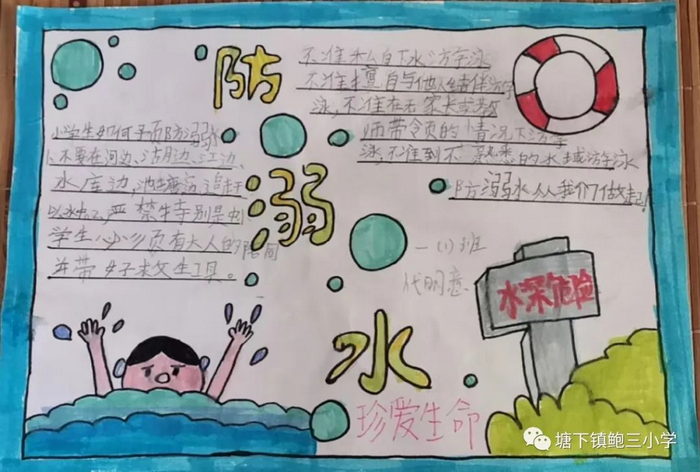 防溺水
不准私自下水游泳
不准擅自与他人结伴游
泳,不准在无家长或教
师带领的情况下游
泳,不准到不熟悉的水域游泳
防溺水从我们做起
小学生如何预防溺水
1、不要在河边、湖边、江边、
水库边,池塘边追赶
严禁特别是中
学生必须有大人的陪同
并带好救生工具。
一(1)班
水深危险
珍爱生命
塘下镇鲍三小学